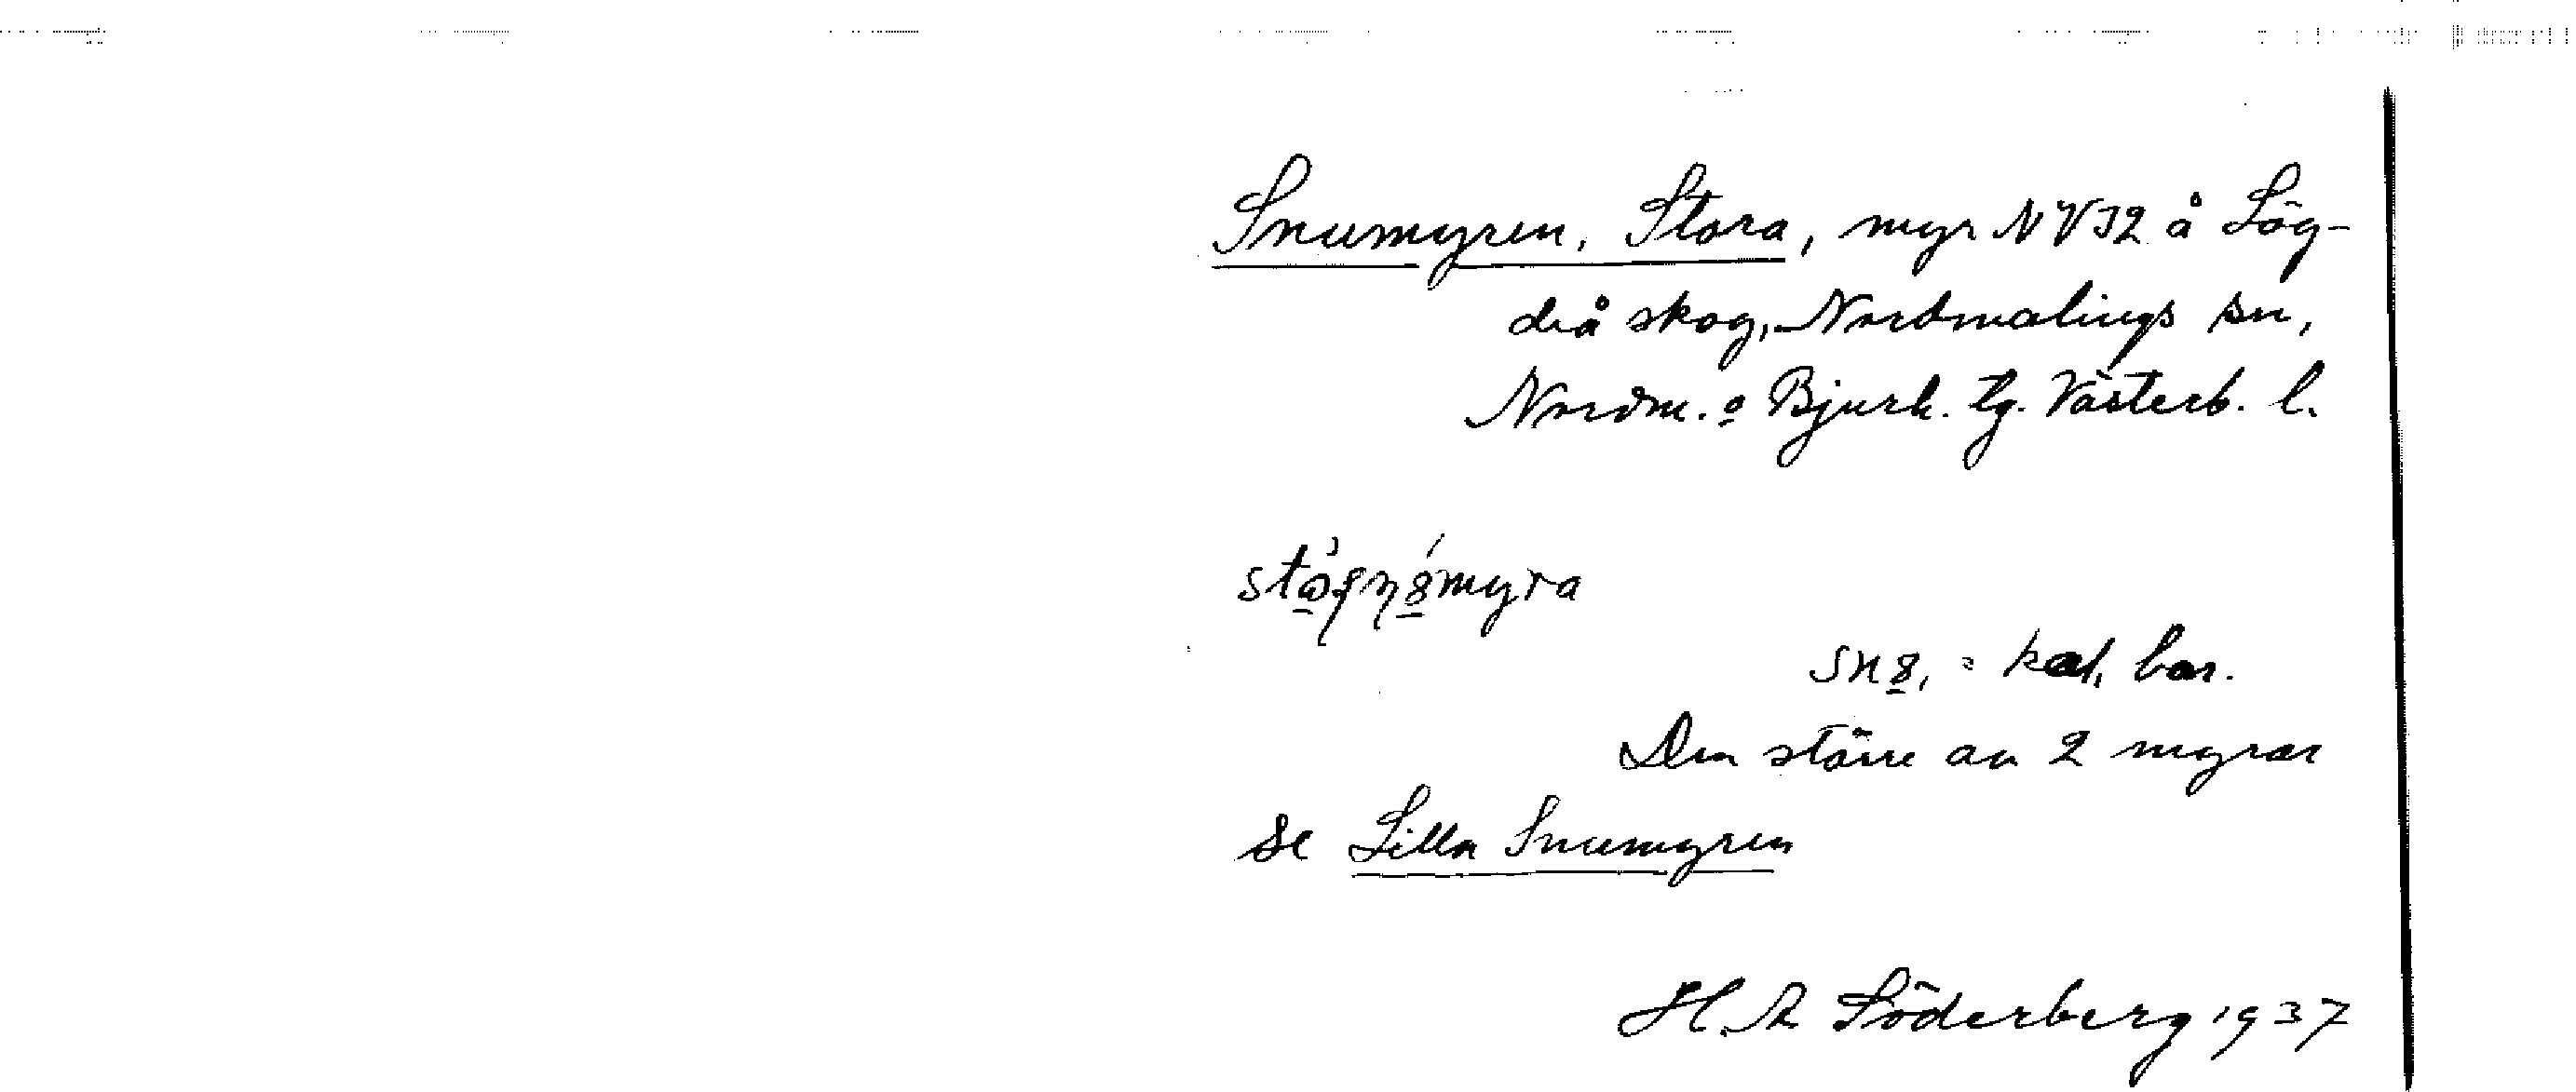 Snumyren, Stora, myr NV32 å Lög-
deå skog, Nordmalings sn,
Nordm. o Bjurh. tg. Västerb. l.
= kal, bar.
Den större av 2 myrar
se Lilla Snumyren
H. A Söderberg 1937